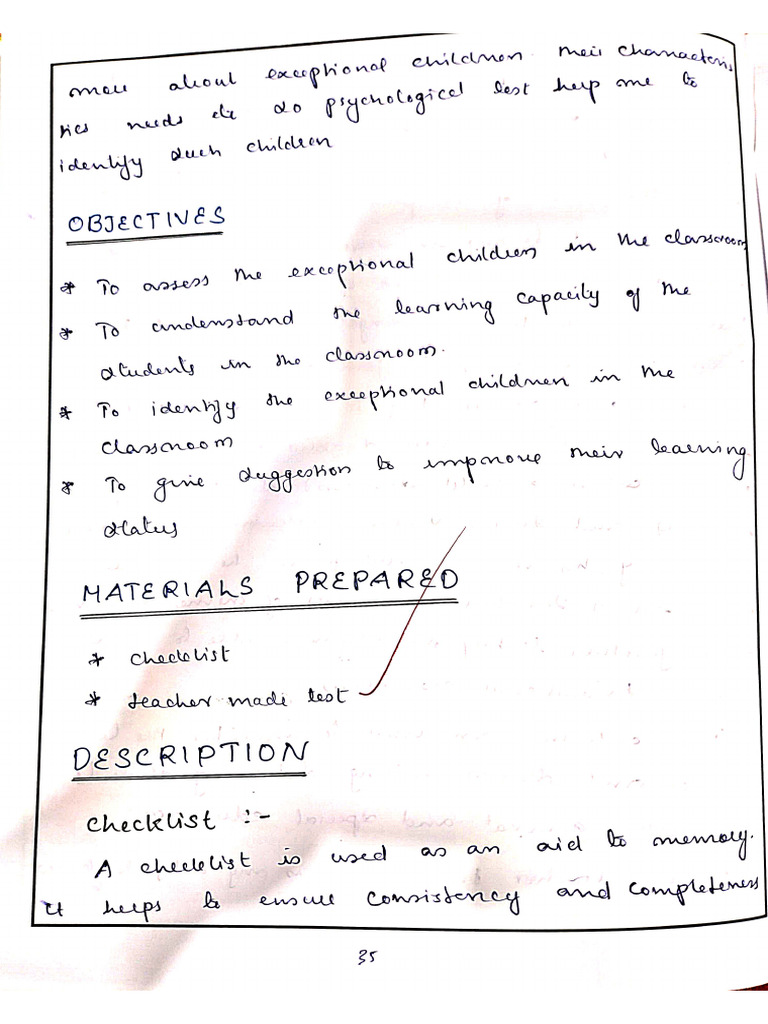 more about exceptional children their characteris
tics needs etc so psychological test help me to
identify such children
OBJECTIVES
* To assess the exceptional children in the classroom
* To understand the learning capacity of the
students in the classroom.
* To identify the exceptional children in the
classroom
* To give suggestion to improve their learning
status
MATERIALS PREPARED
* checklist
* teacher made test
DESCRIPTION
checklist :-
A checklist is used as an aid to memory.
It helps to ensure consistency and completeness
35